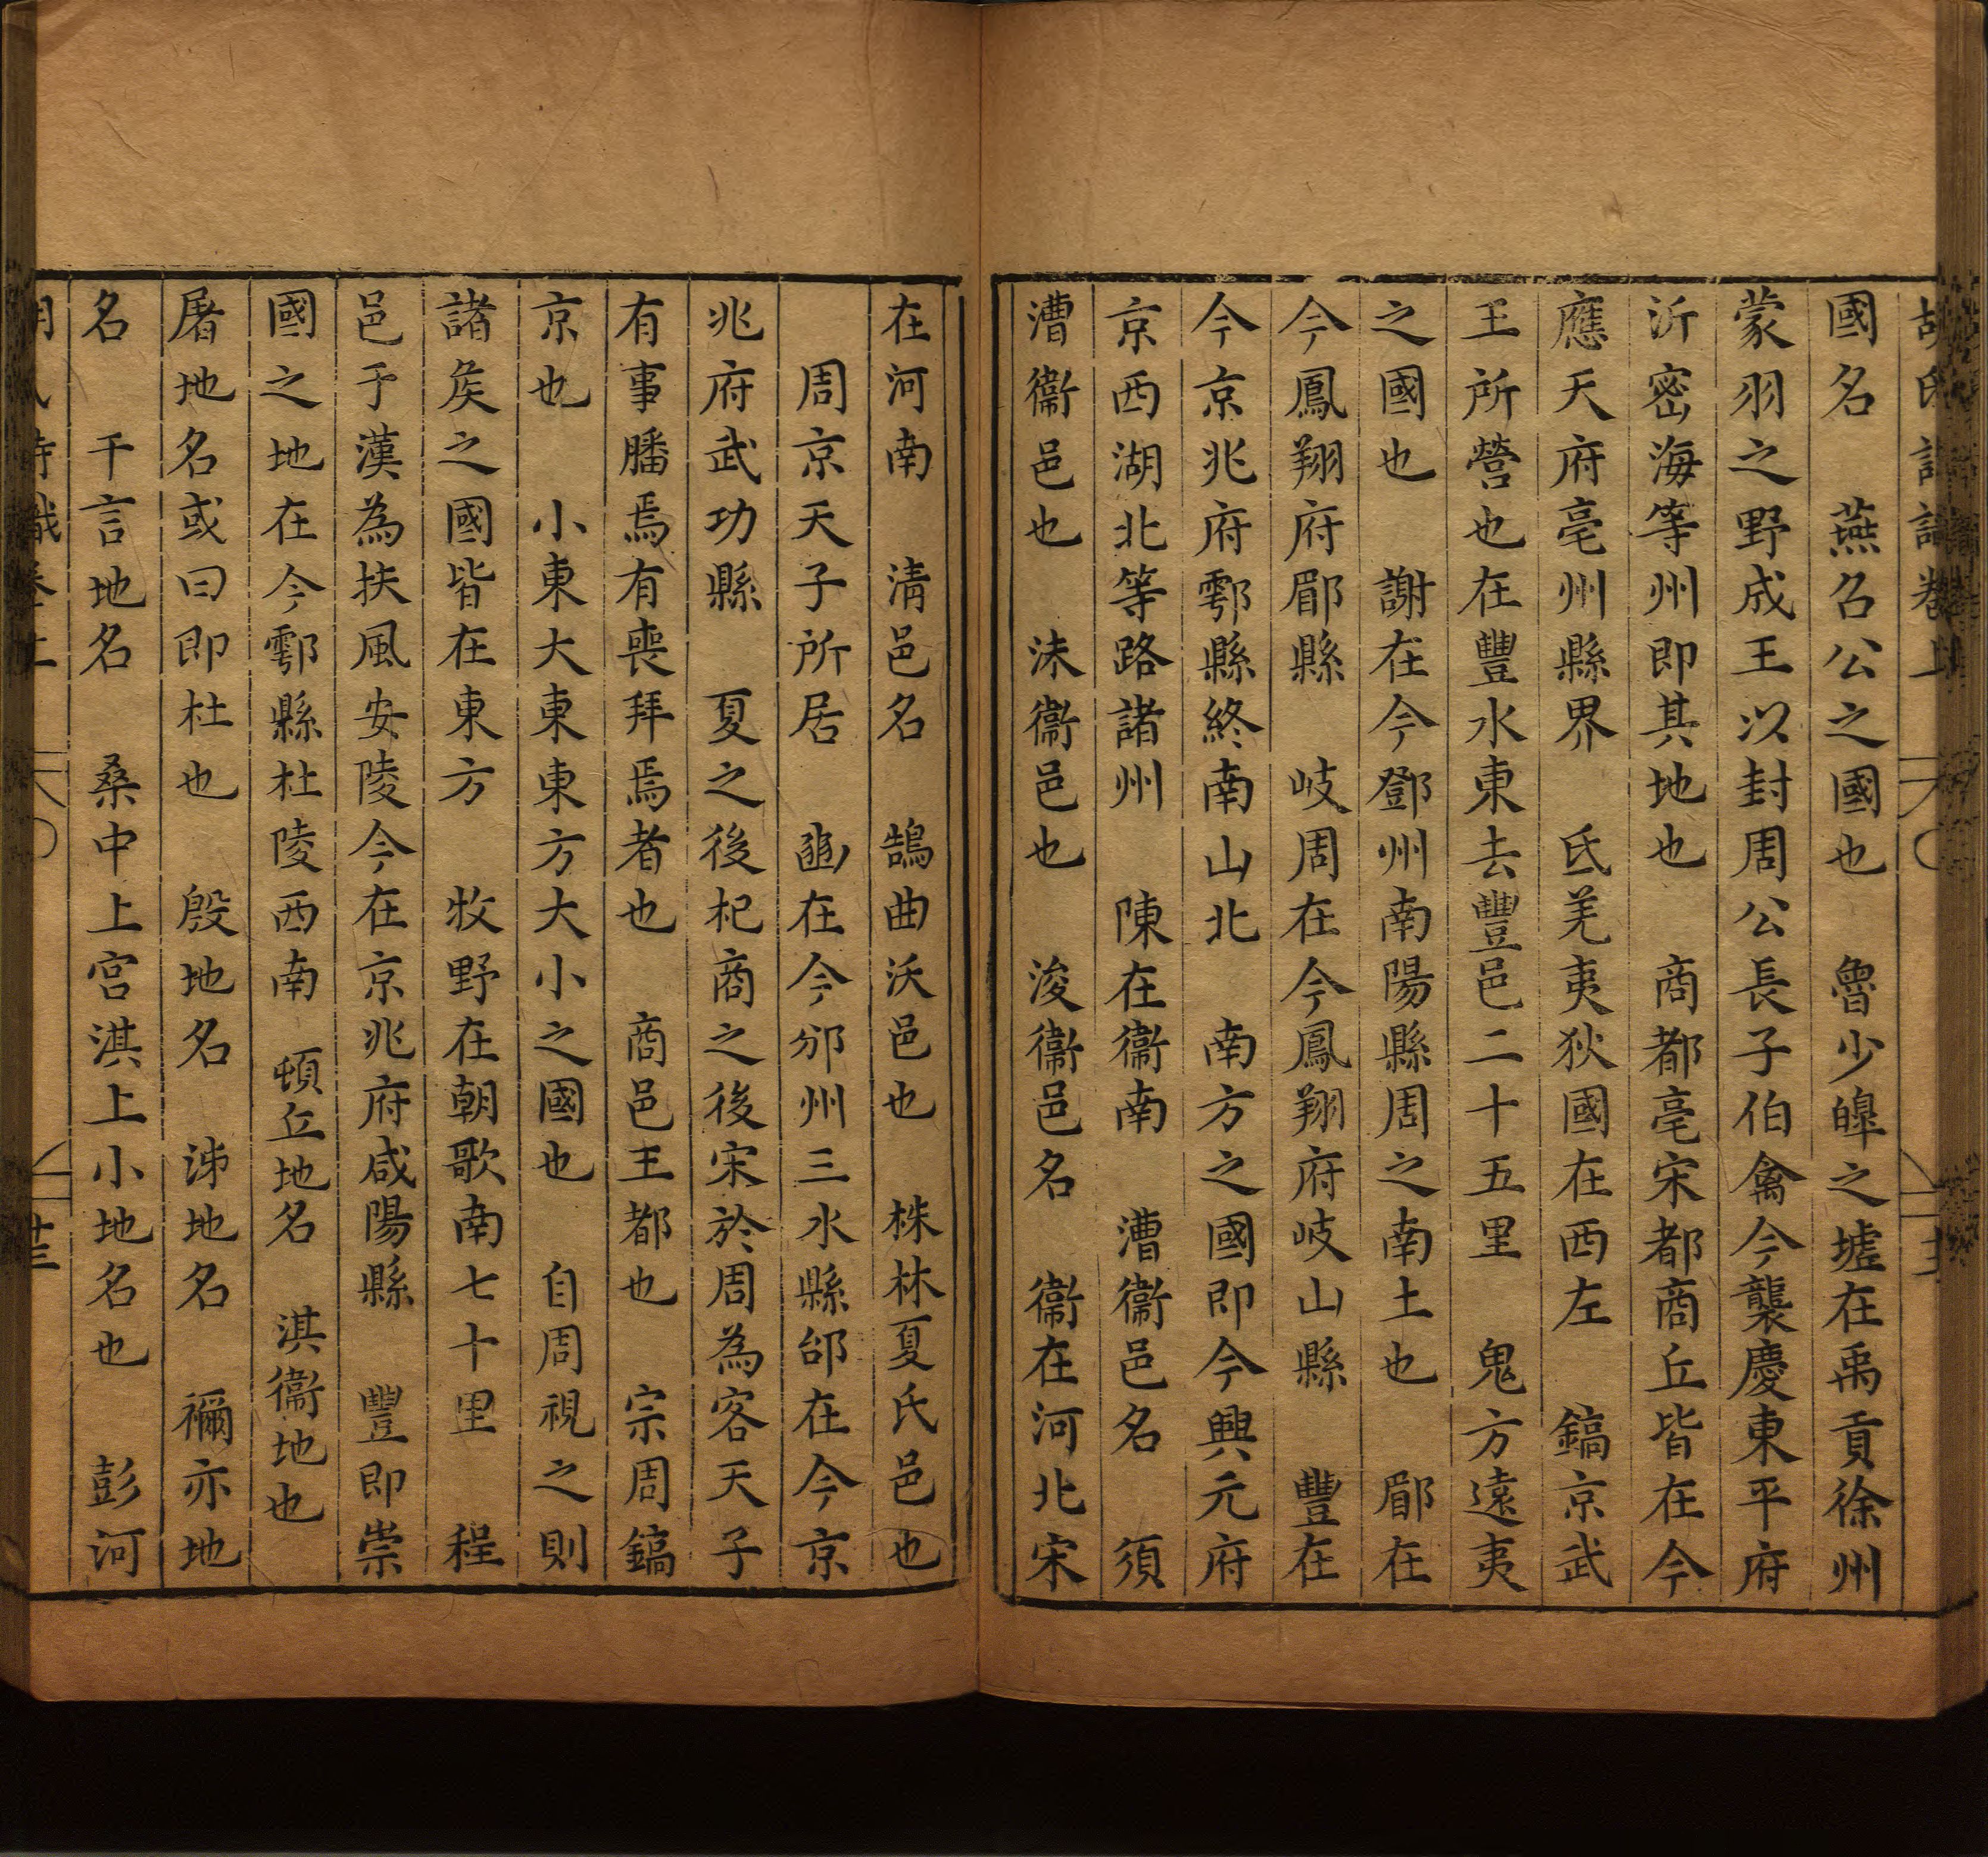 國名　燕召公之國也　魯少皥之墟在禹貢徐州
蒙羽之野成王以封周公長子伯禽今襲慶東平府
沂密海等州即其地也　商都亳宋都商丘皆在今
應天府亳州縣界　氐羌夷狄國在西左　鎬京武
王所營也在豐水東去豐邑二十五里　鬼方遠夷
之國也　謝在今鄧州南陽縣周之南土也　郿在
今鳳翔府郿縣　岐周在今鳳翔府岐山縣　豐在
今京兆府鄠縣終南山北　南方之國即今興元府
京西湖北等路諸州　陳在衞南　漕衞邑名　須
漕衞邑也　沬衞邑也　浚衞邑名　衞在河北宋
在河南　淸邑名　鵠曲沃邑也　株林夏氏邑也
周京天子所居　豳在今邠州三水縣邰在今京
兆府武功縣　夏之後杞商之後宋於周為客天子
有事膰焉有喪拜焉者也　商邑王都也　宗周鎬
京也　小東大東東方大小之國也　自周視之則
諸矦之國皆在東方　牧野在朝歌南七十里　程
邑于漢為扶風安陵今在京兆府咸陽縣　豐即崇
國之地在今鄠縣杜陵西南　頓丘地名　淇衞地也
屠地名或曰即杜也　殷地名　泲地名　禰亦地
名　干言地名　桑中上宫淇上小地名也　彭河